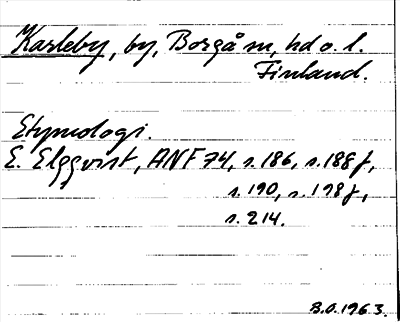 Karleby, by, Borgå sn, hd o. l.
Finland.
Etymologi.
E. Elgqvist, ANF 74, s. 186, s. 188 f,
s. 190, s. 198 f,
s. 214.
B.O. 1963.